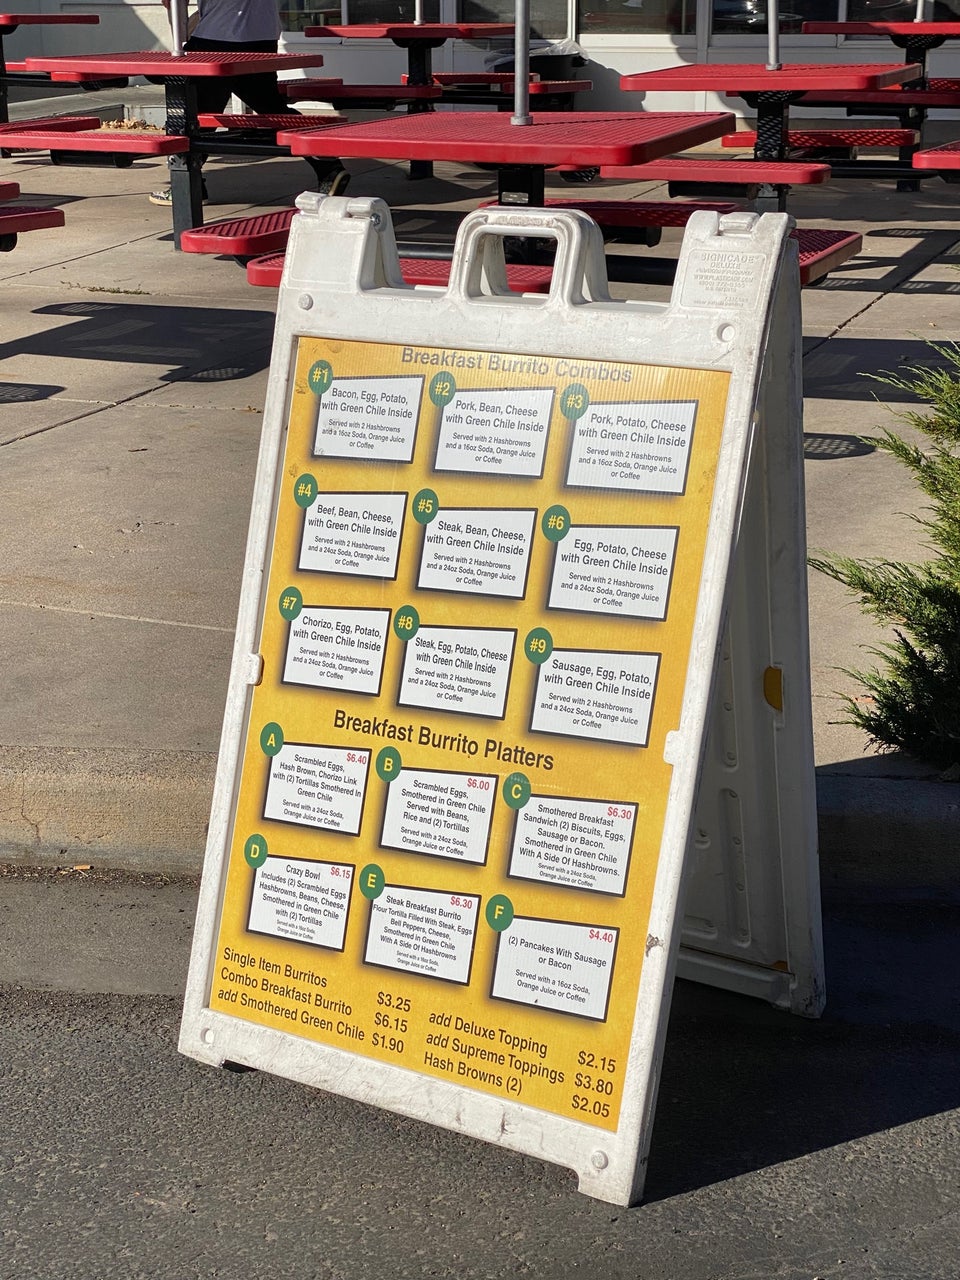 SIGNICADE
DELUXE
Breakfast Burrito Combos
#1
Bacon, Egg, Potato,
with Green Chile Inside
Served with 2 Hashbrowns
and a 16oz Soda, Orange Juice
or Coffee
#2
Pork, Bean, Cheese
with Green Chile Inside
Served with 2 Hashbrowns
and a 16oz Soda, Orange Juice
or Coffee
#3
Pork, Potato, Cheese
with Green Chile Inside
Served with 2 Hashbrowns
and a 16oz Soda, Orange Juice
or Coffee
#4
Beef, Bean, Cheese,
with Green Chile Inside
Served with 2 Hashbrowns
and a 24oz Soda, Orange Juice
or Coffee
#5
Steak, Bean, Cheese,
with Green Chile Inside
Served with 2 Hashbrowns
and a 24oz Soda, Orange Juice
or Coffee
#6
Egg, Potato, Cheese
with Green Chile Inside
Served with 2 Hashbrowns
and a 24oz Soda, Orange Juice
or Coffee
#7
Chorizo, Egg, Potato,
with Green Chile Inside
Served with 2 Hashbrowns
and a 24oz Soda, Orange Juice
or Coffee
#8
Steak, Egg, Potato, Cheese
with Green Chile Inside
Served with 2 Hashbrowns
and a 24oz Soda, Orange Juice
or Coffee
#9
Sausage, Egg, Potato,
with Green Chile Inside
Served with 2 Hashbrowns
and a 24oz Soda, Orange Juice
or Coffee
Breakfast Burrito Platters
A
$6.40
Scrambled Eggs,
Hash Brown, Chorizo Link
with (2) Tortillas Smothered In
Green Chile
Served with a 24oz Soda,
Orange Juice or Coffee
B
$6.00
Scrambled Eggs,
Smothered in Green Chile
Served with Beans,
Rice and (2) Tortillas
Served with a 24oz Soda,
Orange Juice or Coffee
C
$6.30
Smothered Breakfast
Sandwich (2) Biscuits, Eggs,
Sausage or Bacon.
Smothered in Green Chile
With A Side Of Hashbrowns.
Served with a 24oz Soda,
Orange Juice or Coffee
D
$6.15
Crazy Bowl
Includes (2) Scrambled Eggs
Hashbrowns, Beans, Cheese,
Smothered in Green Chile
with (2) Tortillas
Served with a 16oz Soda,
Orange Juice or Coffee
E
$6.30
Steak Breakfast Burrito
Flour Tortilla Filled With Steak, Eggs
Bell Peppers, Cheese,
Smothered in Green Chile
With A Side Of Hashbrowns
Served with a 16oz Soda,
Orange Juice or Coffee
F
$4.40
(2) Pancakes With Sausage
or Bacon
Served with a 16oz Soda,
Orange Juice or Coffee
Single Item Burritos $3.25
Combo Breakfast Burrito $6.15
add Smothered Green Chile $1.90
add Deluxe Topping $2.15
add Supreme Toppings $3.80
Hash Browns (2) $2.05